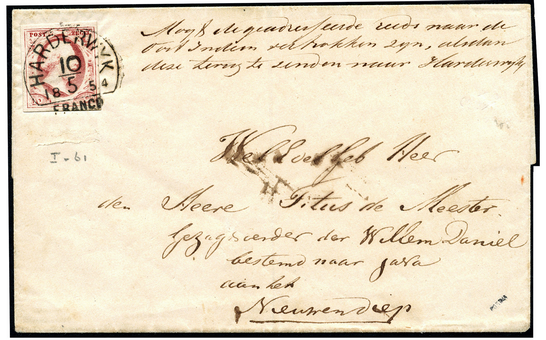 POST
HARDERWYK
10
5
18 54
FRANCO
Mogt de geadresseerde reeds naar de
Oost Indien vertrokken zijn, alsdan
deze terug te zenden naar Harderwijk
I-61
WelEdelGeb Heer
den Heere Titus de Meester
Gezagvoerder der Willem Daniel
bestemd naar Java
aan het
Nieuwendiep